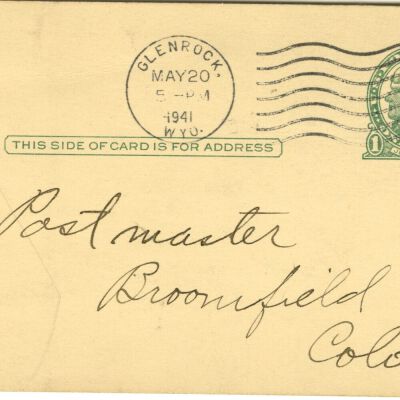 GLENROCK,
MAY 20
5 - PM
1941
WYO.
THIS SIDE OF CARD IS FOR ADDRESS
1
Postmaster
Broomfield
Colo